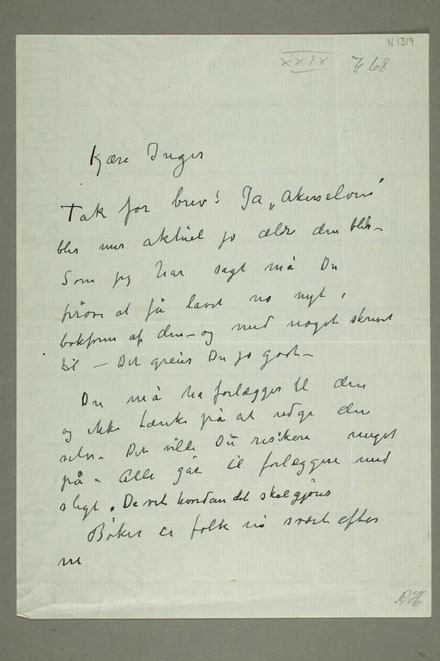 N 1319
XXIX
Kjære Inger
Tak for brev! Ja, „Akerselven"
blir mer aktuel jo ældre den blir –
Som jeg har sagt må Du
prøve at få lavet no nyt i
bokform af den – og med noget skrevet
til – Det greier Du jo godt –
Du må ha forlægger til den
og ikke tænke på at utgi den
selv. Det vilde Du risikere meget
på – Alle går til forlæggere med
sligt. De vet hvordan det skal gjøres
Bøker er folk nu svært efter
nu